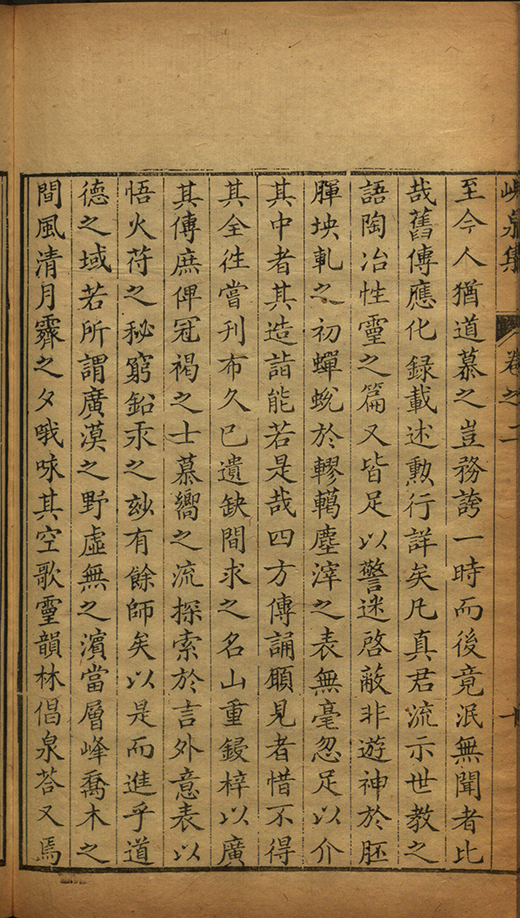 峴泉集
卷之二
十
至今人猶道慕之豈務誇一時而後竟泯無聞者比
哉舊傳應化録載述勲行詳矣凡真君流示世教之
語陶冶性靈之篇又皆足以警迷啓蔽非遊神於胚
腪坱軋之初蟬蛻於轇轕塵滓之表無毫忽足以介
其中者其造詣能若是哉四方傳誦願見者惜不得
其全徃嘗刊布久已遺缺間求之名山重鋟梓以廣
其傳庶俾冠褐之士慕嚮之流探索於言外意表以
悟火苻之秘窮鉛汞之玅有餘師矣以是而進乎道
德之域若所謂廣漠之野虛無之濱當層峰喬木之
間風清月霽之夕哦咏其空歌靈韻林倡泉荅又焉